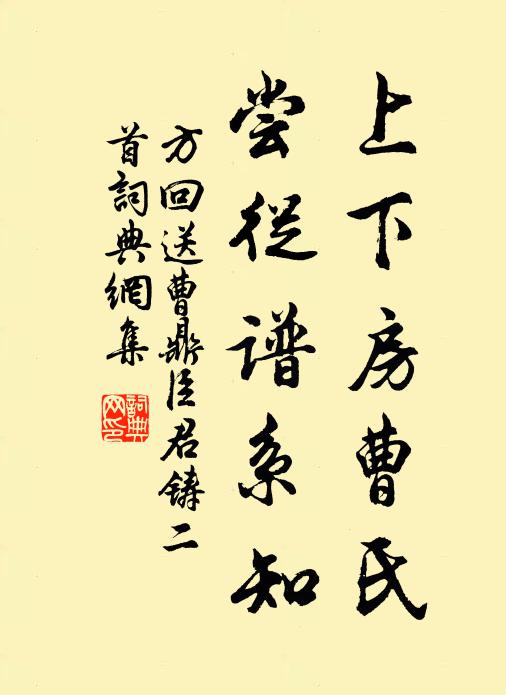 上下房曹氏
尝从谱系知
方回送曹鼎臣君铸二
首詞典網集
詞典
网印